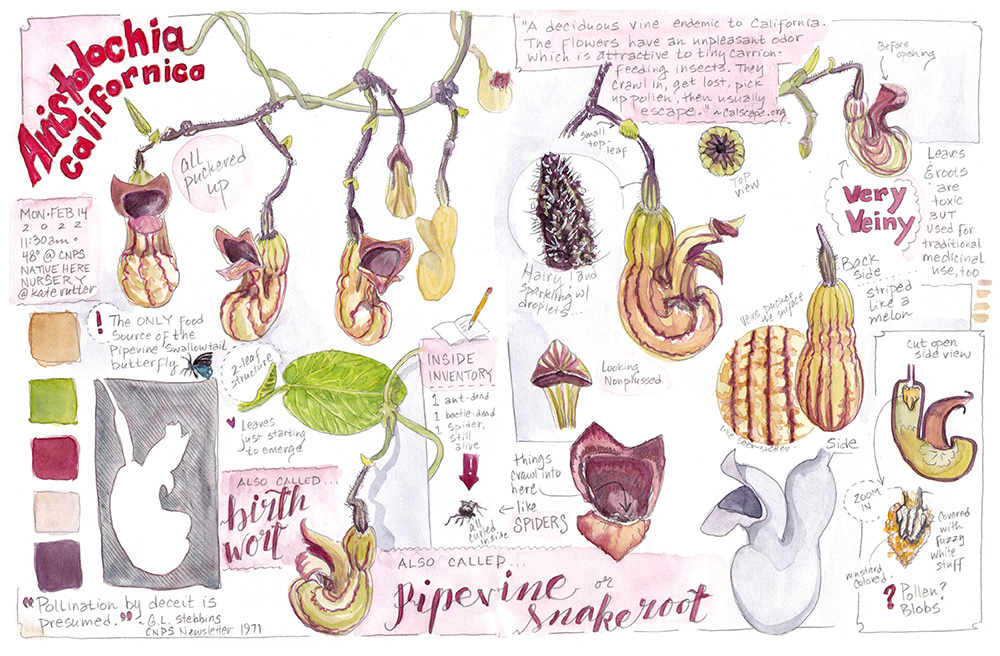 Aristolochia
californica
"A deciduous vine endemic to California.
The flowers have an unpleasant odor
which is attractive to tiny carrion-
feeding insects. They
crawl in, get lost, pick
up pollen, then usually
escape." ~calscape.org
Before
opening
all
puckered
up
small
top-
leaf
Top
view
Very
Veiny
Leaves
& roots
are
toxic
BUT
used for
traditional
medicinal
use, too
MON·FEB 14
2022
11:30am·
48° @ CNPS
NATIVE HERE
NURSERY
@kate rutter
Hairy! and
sparkling w/
droplets...
Back
side
striped
like a
melon
! The ONLY Food
Source of the
Pipevine Swallowtail
butterfly
2-leaf
structure
INSIDE
INVENTORY
1 ant-dead
1 beetle-dead
1 spider,
still
alive
Veins pucker
the surface
like seer-sucker
Looking
Nonplussed
Cut open
side view
♥ Leaves
just starting
to emerge
Side
things
crawl into
here
like
SPIDERS
all
curled
inside
ZOOM
IN
Covered
with
fuzzy
white
stuff
mustard
colored
? Pollen?
Blobs
ALSO CALLED...
birth
wort
ALSO CALLED...
pipevine or
snakeroot
"Pollination by deceit is
presumed." ~ G.L. Stebbins
CNPS Newsletter 1971